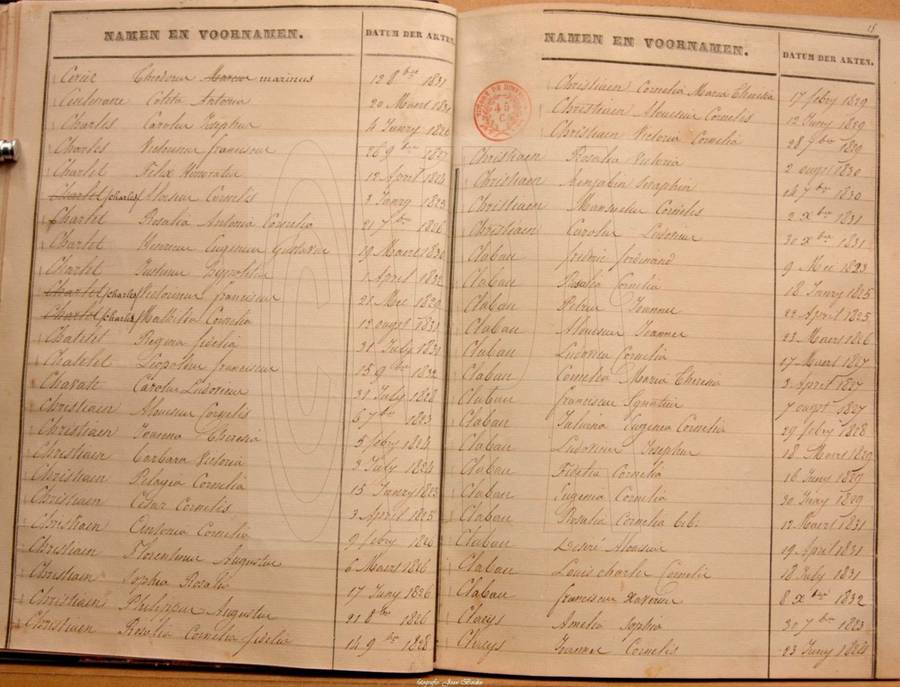 NAMEN EN VOORNAMEN. DATUM DER AKTEN.
Theodorus Marcus marinus 12 8bre 1831
Coleta Antonia 20 Maart 1831
Charles Carolus Josephus 4 Janry 1826
Charles Victorinus franciscus 26 9bre 1827
Charlet Felix Honoratus 12 April 1824
Charlet (Charles) Aloisius Cornelis 3 Janry 1825
Charlet Rosalia Antonia Cornelia 21 7bre 1826
Charlet Henricus Eugenius Gustavus 19 Maart 1830
Charlet Justinus Hypolitus 1 April 1832
Charlet (Charles) Victorinus franciscus 28 Mei 1829
Charlet (Charles) Mathilia Cornelia 12 augst 1831
Chatelet Regina fidelia 31 July 1831
Chatelet Leopoldus franciscus 15 9bre 1832
Carolus Ludovicus 31 July 1828
Christiaen Aloisius Cornelis 6 7bre 1823
Christiaen Joanna Theresia 5 febry 1824
Christiaen Barbara Victoria 2 July 1824
Christiaen Pelagia Cornelia 15 Janry 1825
Christiaen Cesar Cornelis 3 April 1825
Christiaen Antonia Cornelia 9 febry 1826
Christiaen Florentinus Augustus 6 Maart 1826
Christiaen Sophia Rosalia 17 Juny 1826
Christiaens Philippus Augustus 21 8bre 1826
Christiaen Rosalia Cornelia fidelia 14 9bre 1828
15
NAMEN EN VOORNAMEN. DATUM DER AKTEN.
Christiaen Cornelia Maria Theresia 17 febry 1829
Christiaen Aloisius Cornelis 12 Juny 1829
Christiaen Victoria Cornelia 28 7bre 1829
Christiaen Rosalia Victoria 2 augst 1830
Christiaen Benjamin Seraphin 24 7bre 1830
Christiaen Mansuetus Cornelis 2 Xbre 1831
Christiaen Carolus Ludovicus 30 Xbre 1831
Clabau fredric ferdinand 9 Mei 1823
Clabau Rosalia Cornelia 18 Janry 1825
Clabau Petrus Joannes 22 April 1825
Clabau Aloisius Joannes 23 Maart 1826
Clabau Ludovica Cornelia 17 Maart 1827
Clabau Cornelia Maria Theresia 3 April 1827
Clabau franciscus Ignatius 7 augst 1827
Clabau Eugenia Cornelia 29 febry 1828
Clabau Ludovicus Josephus 18 Maart 1829
Clabau Fidelia Cornelia 16 Juny 1829
Clabau Eugenia Cornelia 30 Juny 1829
Clabau Rosalia Cornelia 12 Maart 1831
Clabau Desiré Aloisius 19 April 1831
Clabau Louis charles Cornelis 18 July 1831
Clabau franciscus Xaverius 8 Xbre 1832
Claeys Amelia Sophia 30 7bre 1823
Claeys Joannes Cornelis 23 Juny 1824